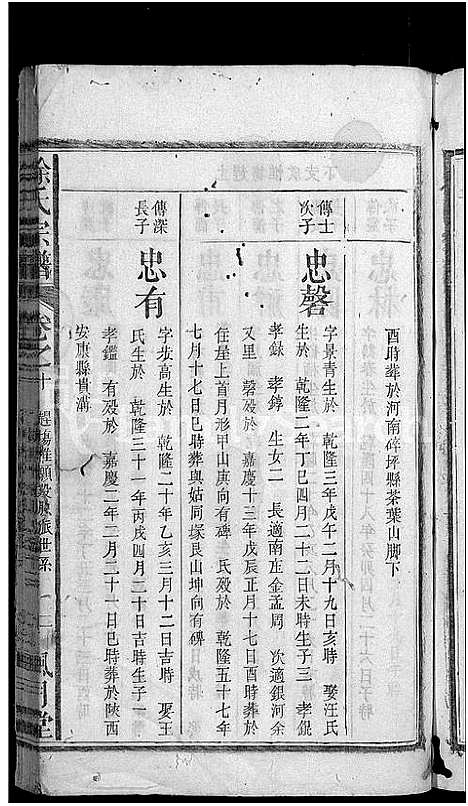 酉時葬於河南碎坪縣茶葉山脚下
傳士次子
忠磬
字景青生於 乾隆三年戊午二月十九日亥時 娶汪氏
生於 乾隆二年丁巳四月二十二日未時生子三 孝錕
孝錄 孝錞 生女二 長適南庄金孟周 次適銀河余
又里 磬殁於 嘉慶十三年戊辰正月十七日酉時葬於
任屋上首月形甲山庚向有碑 氏殁於 乾隆五十七年
七月十七日巳時葬與姑同塚艮山坤向有碑
傳深長子
忠有
字 高生於 乾隆二十年乙亥三月十二日吉時 娶王
氏生於 乾隆三十一年丙戌四月二十日吉時生子一
孝鑑 有殁於 嘉慶二年二月二十一日巳時葬於陝西
安康縣貴溝
徐氏宗譜
卷之十
趙 惟顯 股 派世系
風月堂